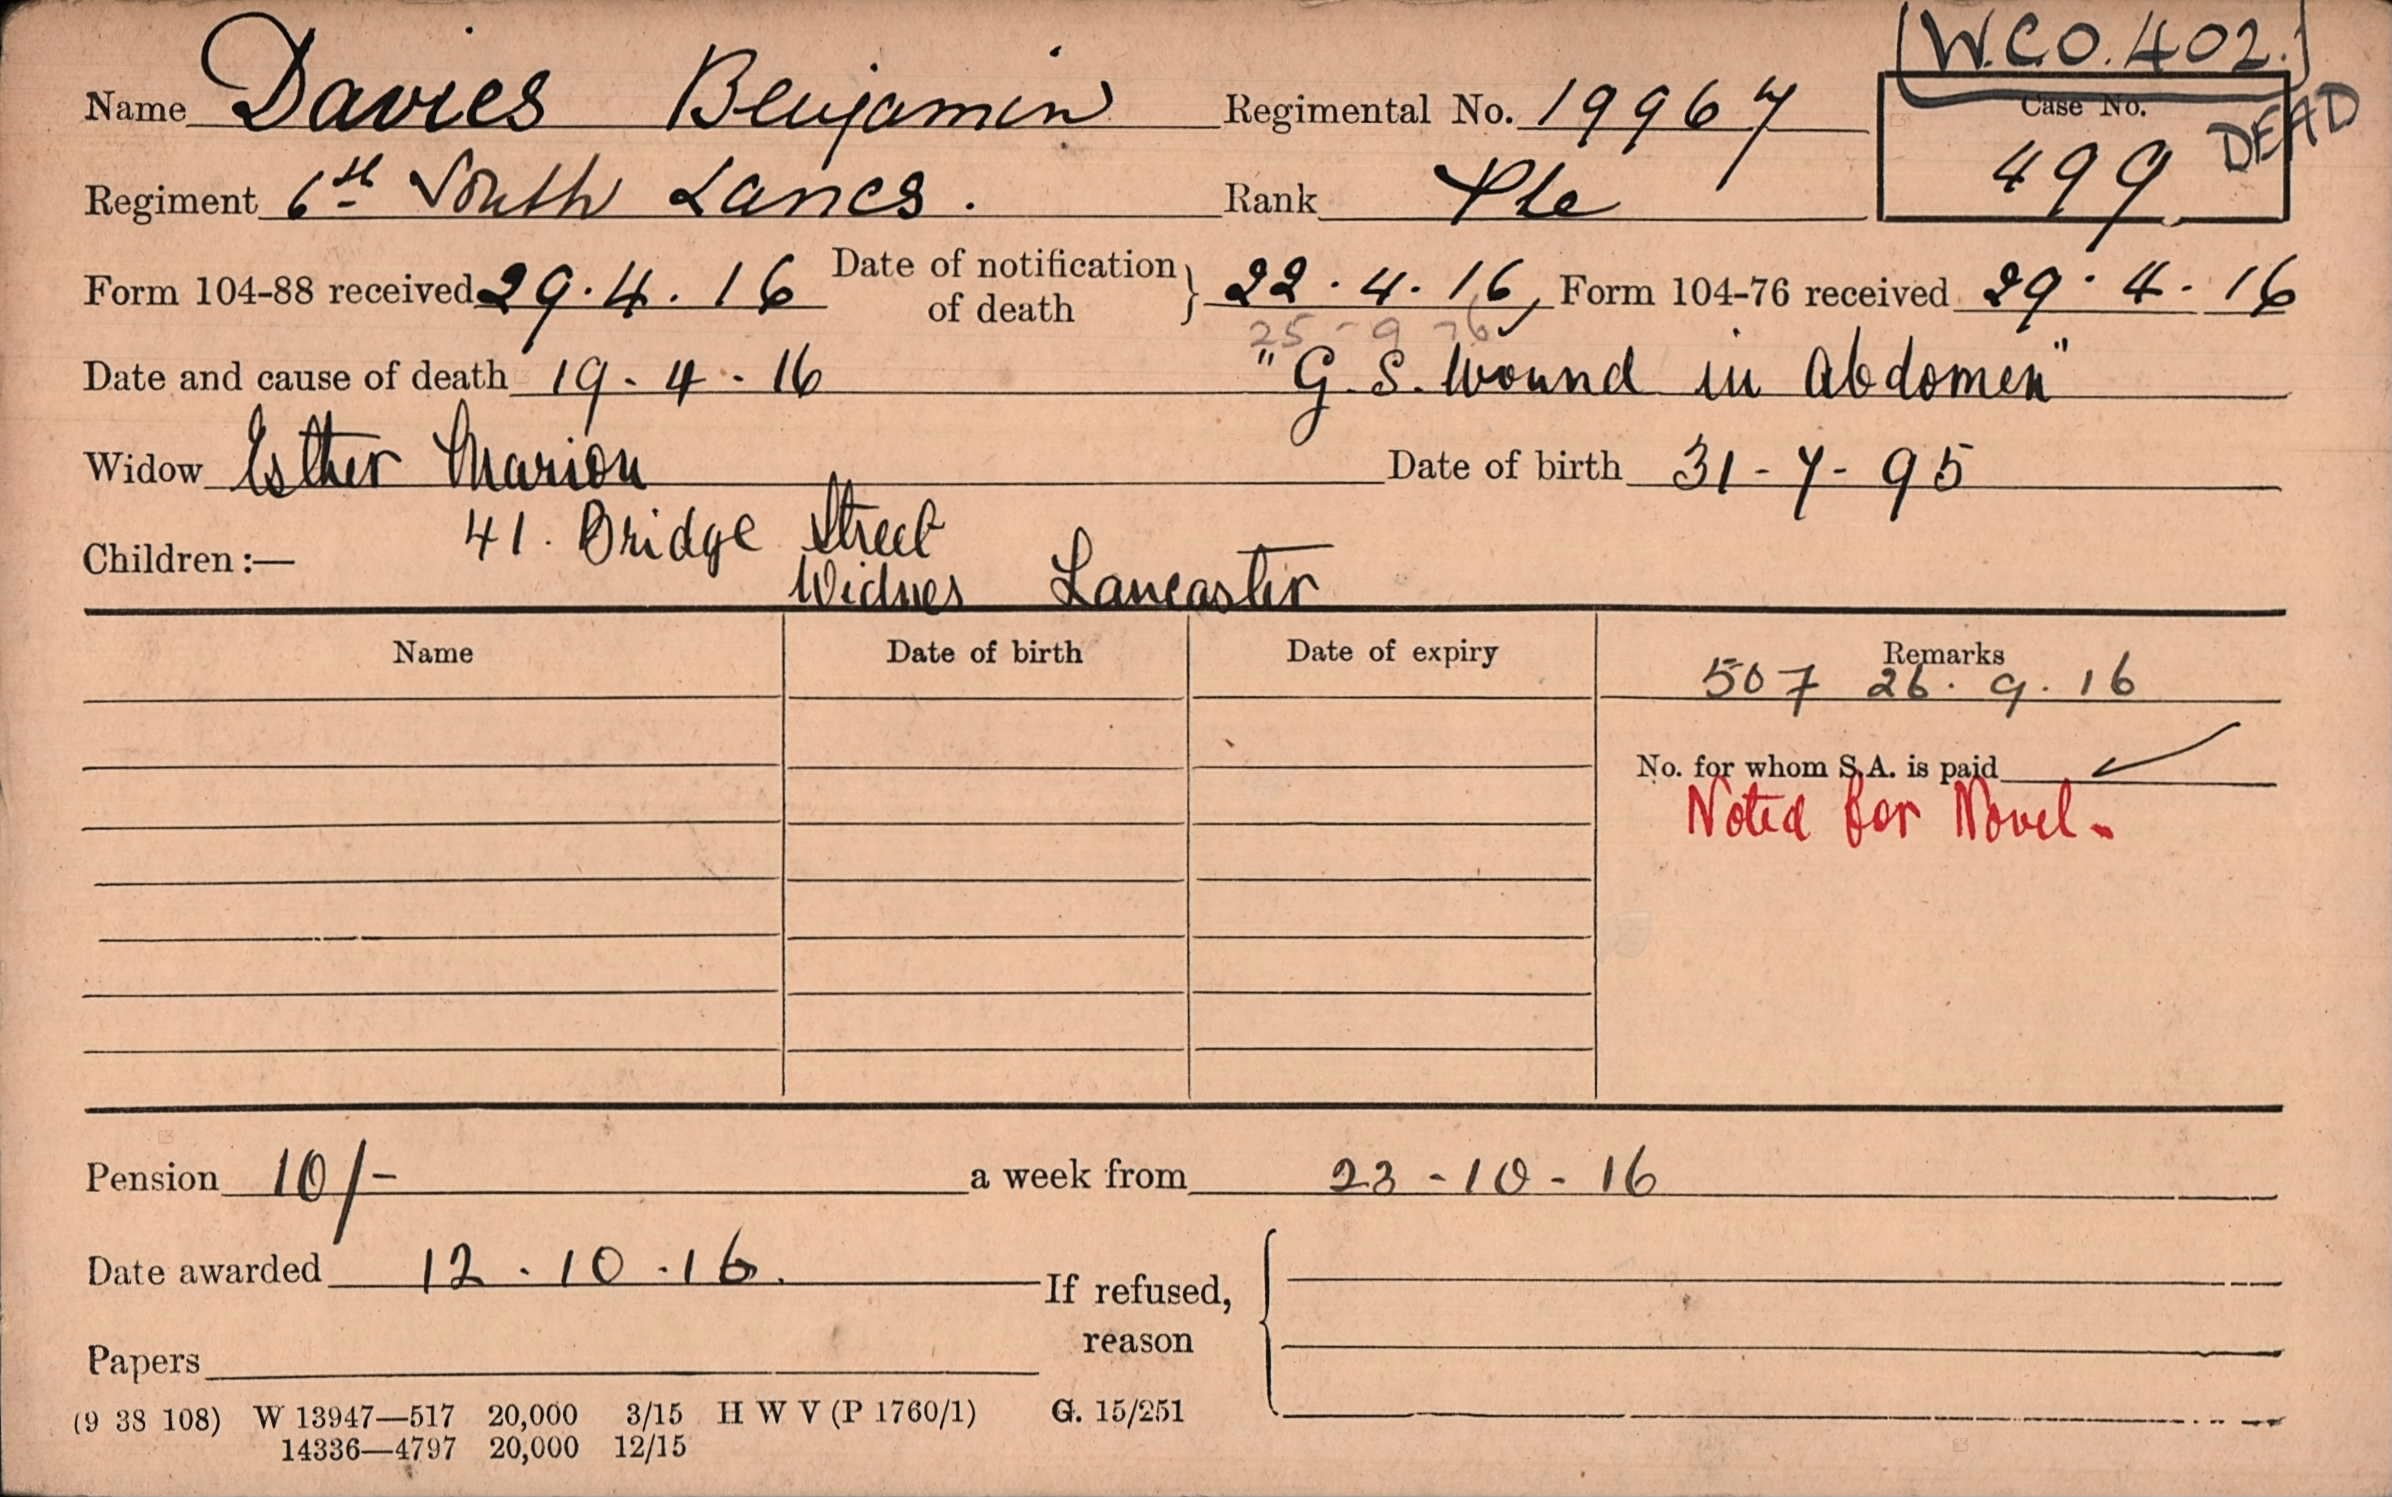 [W.C.O. 402.]
Name Davies Benjamin Regimental No. 19967 Case No. DEAD
Regiment 6th South Lancs. Rank Pte 499
Form 104-88 received 29.4.16 Date of notification of death } 22.4.16, Form 104-76 received 29.4.16
25-9-16
Date and cause of death 19.4.16 "G.S. Wound in Abdomen"
Widow Esther Marion Date of birth 31-7-95
41. Bridge Street
Children :— Widnes Lancaster
Name Date of birth Date of expiry Remarks
507 26.9.16
No. for whom S.A. is paid ✓
Noted for Novel.
Pension 10/- a week from 23-10-16
Date awarded 12.10.16. If refused, reason {
Papers
(9 38 108) W 13947—517 20,000 3/15 H W V (P 1760/1) G. 15/251
14336—4797 20,000 12/15